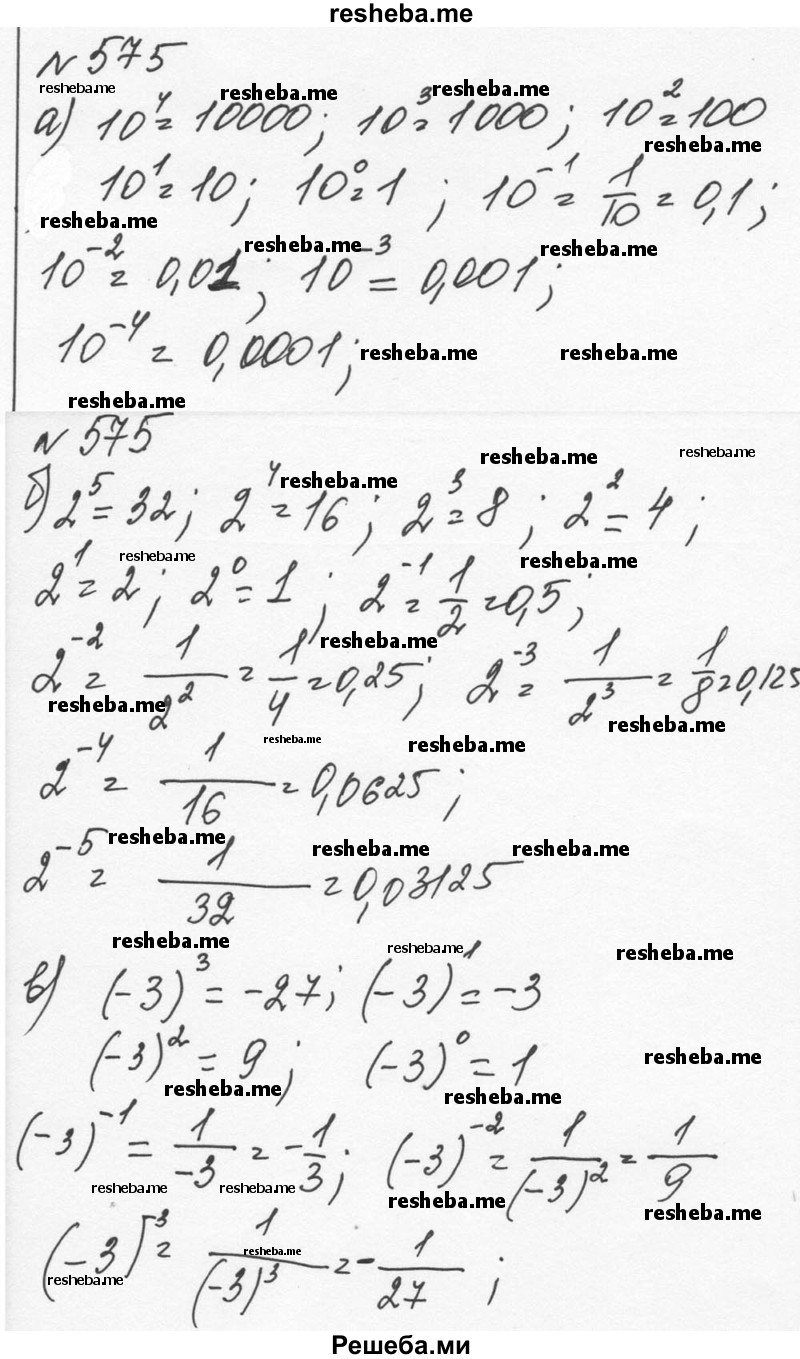 resheba.me
№ 575
resheba.me resheba.me resheba.me
а) 10⁴ = 10000; 10³ = 1000; 10² = 100
resheba.me
10¹ = 10; 10⁰ = 1; 10⁻¹ = 1/10 = 0,1;
resheba.me resheba.me resheba.me
10⁻² = 0,01; 10⁻³ = 0,001;
10⁻⁴ = 0,0001; resheba.me resheba.me
resheba.me
№ 575
resheba.me resheba.me resheba.me
б) 2⁵ = 32; 2⁴ = 16; 2³ = 8; 2² = 4;
resheba.me resheba.me
2¹ = 2; 2⁰ = 1; 2⁻¹ = 1/2 = 0,5;
resheba.me
2⁻² = 1/2² = 1/4 = 0,25; 2⁻³ = 1/2³ = 1/8 = 0,125
resheba.me resheba.me
resheba.me resheba.me
2⁻⁴ = 1/16 = 0,0625;
resheba.me resheba.me resheba.me
2⁻⁵ = 1/32 = 0,03125
resheba.me resheba.me resheba.me
в) (-3)³ = -27; (-3)¹ = -3
(-3)² = 9; (-3)⁰ = 1 resheba.me
resheba.me resheba.me
(-3)⁻¹ = 1/-3 = -1/3; (-3)⁻² = 1/(-3)² = 1/9
resheba.me resheba.me resheba.me resheba.me
(-3)⁻³ = 1/(-3)³ = -1/27;
resheba.me resheba.me
Решеба.ми